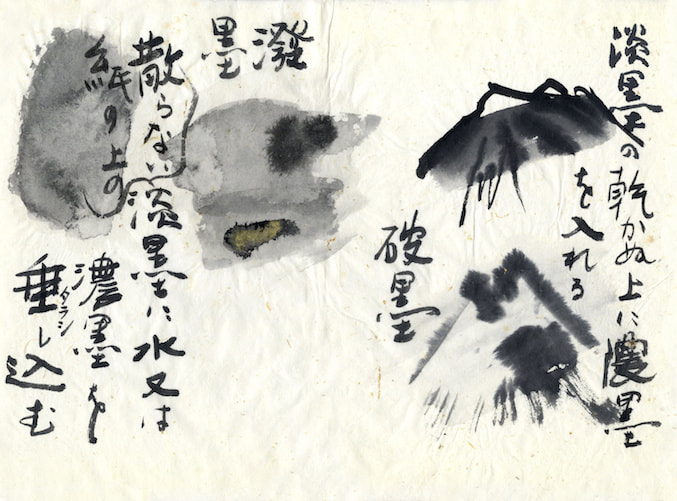 淡墨の乾かぬ上に濃墨
を入れる
破墨
潑墨
散らない淡墨に水又は
紙の上の
濃墨を
タラシ
垂し込む